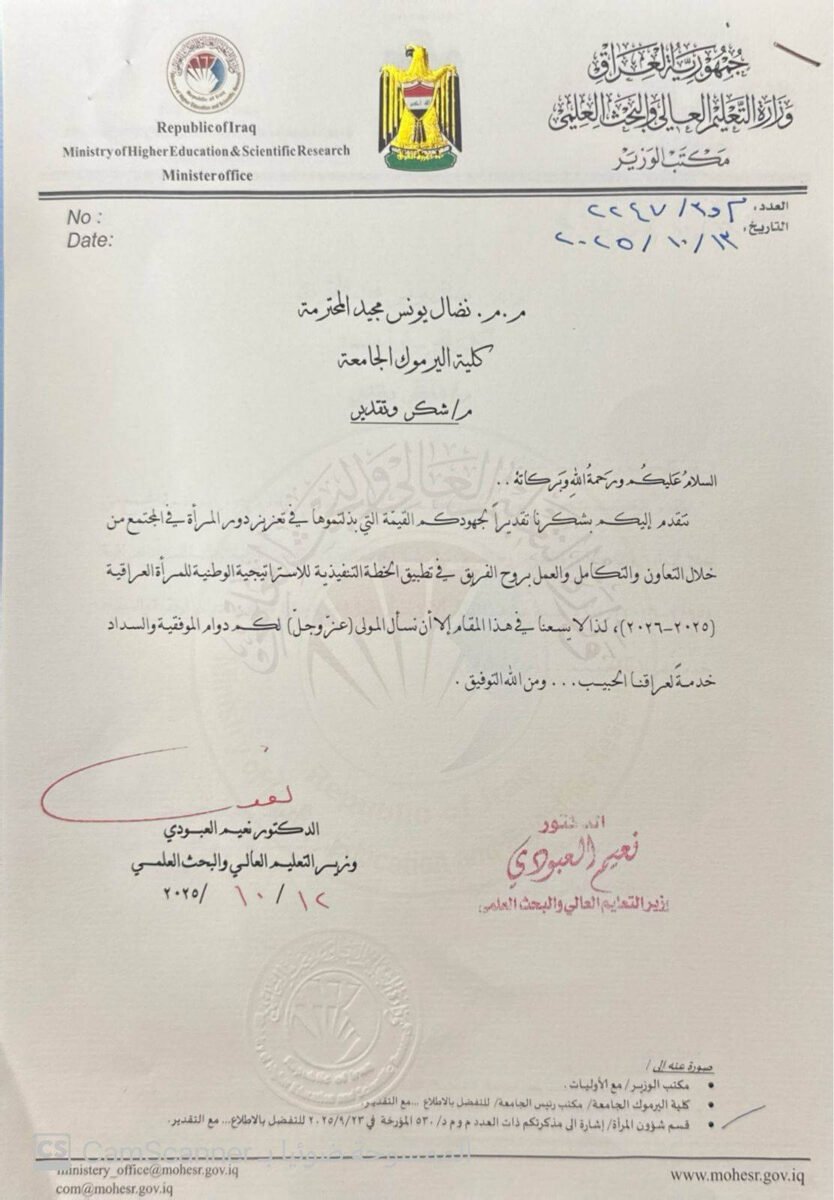 جمهورية العراق
وزارة التعليم العالي والبحث العلمي
مكتب الوزير
Republic of Iraq
Ministry of Higher Education & Scientific Research
Minister office
No :
Date:
العدد: م و ٣/ ٢٢٤٧
التاريخ: ١٣/ ١٠/ ٢٠٢٥
م.م. نضال يونس مجيد المحترمة
كلية اليرموك الجامعة
م/ شكر وتقدير
السلامُ عَليكُم ورَحمةُ اللهِ وبَركاتهُ ..
نتقدم إليكم بشكرنا تقديراً لجهودكم القيمة التي بذلتموها في تعزيز دور المرأة في المجتمع من
خلال التعاون والتكامل والعمل بروح الفريق في تطبيق الخطة التنفيذية للاستراتيجية الوطنية للمرأة العراقية
(٢٠٢٥-٢٠٢٦)، لذا لا يسعنا في هذا المقام إلا أن نسأل المولى (عزّ وجلّ) لكم دوام الموفقية والسداد
خدمةً لعراقنا الحبيب... ومن الله التوفيق .
الدكتور نعيم العبودي
وزير التعليم العالي والبحث العلمي
١٢/ ١٠/ ٢٠٢٥
الدكتور
نعيم العبودي
وزير التعليم العالي والبحث العلمي
صورة عنه الى /
• مكتب الوزير/ مع الأوليات .
• كلية اليرموك الجامعة/ مكتب رئيس الجامعة/ للتفضل بالاطلاع ...مع التقدير.
• قسم شؤون المرأة/ إشارة الى مذكرتكم ذات العدد م و م د/ ٥٣٠ المؤرخة في ٢٠٢٥/٩/٢٣ للتفضل بالاطلاع... مع التقدير.
CS CamScanner الممسوحة ضوئيا بـ
ministery_office@mohesr.gov.iq
com@mohesr.gov.iq
www.mohesr.gov.iq